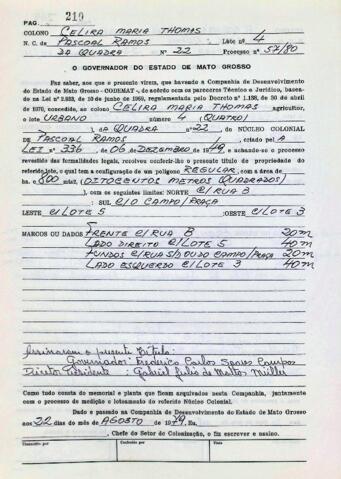 PAG. 219
COLONO CELIRA MARIA THOMAS
N. C. de PASCOAL RAMOS Lote n.º 4
DA QUADRA N.º 22 Processo n.º 57/80
O GOVERNADOR DO ESTADO DE MATO GROSSO
Faz saber, aos que o presente virem, que havendo a Companhia de Desenvolvimento
do Estado de Mato Grosso - CODEMAT -, de acôrdo com os parecres Técnico e Jurídico, basea-
do na Lei n.º 2.825, de 10 de junho de 1969, regulamentada pelo Decreto n.º 1.138, de 30 de abril
de 1970, concedido, ao colono CELIRA MARIA THOMAS agricultor,
o lote URBANO número 4 (QUATRO)
), DA QUADRA n.º 22, DO NÚCLEO COLONIAL
DE PASCOAL RAMOS ), criado pel A
LEI n.º 336, de 06 de DEZEMBRO de 1949, e achando-se o processo
revestido das formalidades legais, resolveu conferir-lhe o presente título de propriedade do
referido lote, o qual tem a configuração de um polígono REGULAR, com a área de
ha. 800 mts2, (OITOCENTOS METROS QUADRADOS)
), com os seguintes limites: NORTE C/ RUA B
: SUL C/O CAMPO/PRAÇA
LESTE C/ LOTE 5 :OESTE C/ LOTE 3
MARCOS OU DADOS FRENTE C/ RUA B 20m
LADO DIREITO C/ LOTE 5 40m
FUNDOS C/ RUA S/D OU DO CAMPO/PRAÇA 20m
LADO ESQUERDO C/ LOTE 3 40m
Assinaram o presente Título:
Governador: Frederico Carlos Soares Campos
Diretor Presidente: Gabriel Julio de Mattos Müller
Como tudo consta do memorial e planta que ficam arquivados nesta Companhia, juntamente
com o processo de medição e loteamento do referido Núcleo Colonial.
Dado e passado na Companhia de Desenvolvimento do Estado de Mato Grosso
aos 22 dias do mês de AGOSTO de 1979, Eu,
, Chefe do Setor de Colonização, o fiz escrever e assino.
Transcrito por Conferido por Visto